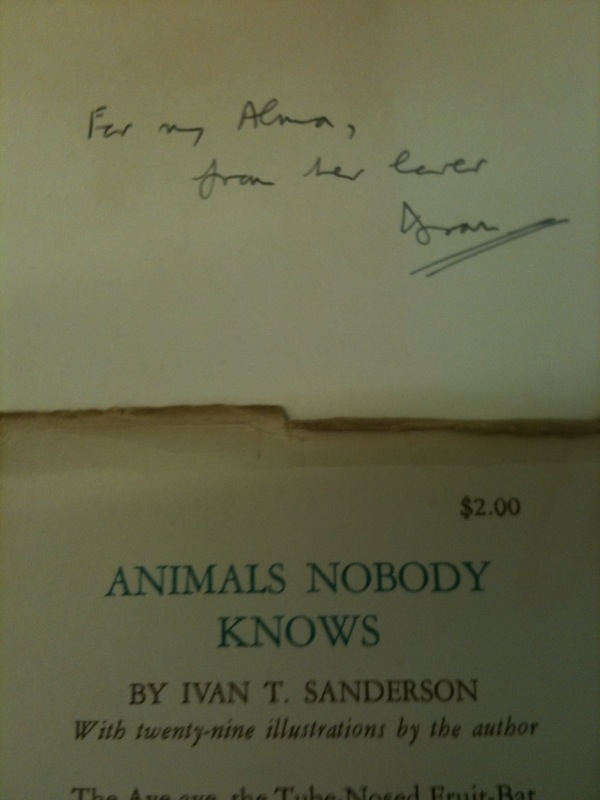 For my Alma,
from her lover
Ivan
$2.00
ANIMALS NOBODY
KNOWS
BY IVAN T. SANDERSON
With twenty-nine illustrations by the author
The Aye-aye, the Tube-Nosed Fruit-Bat